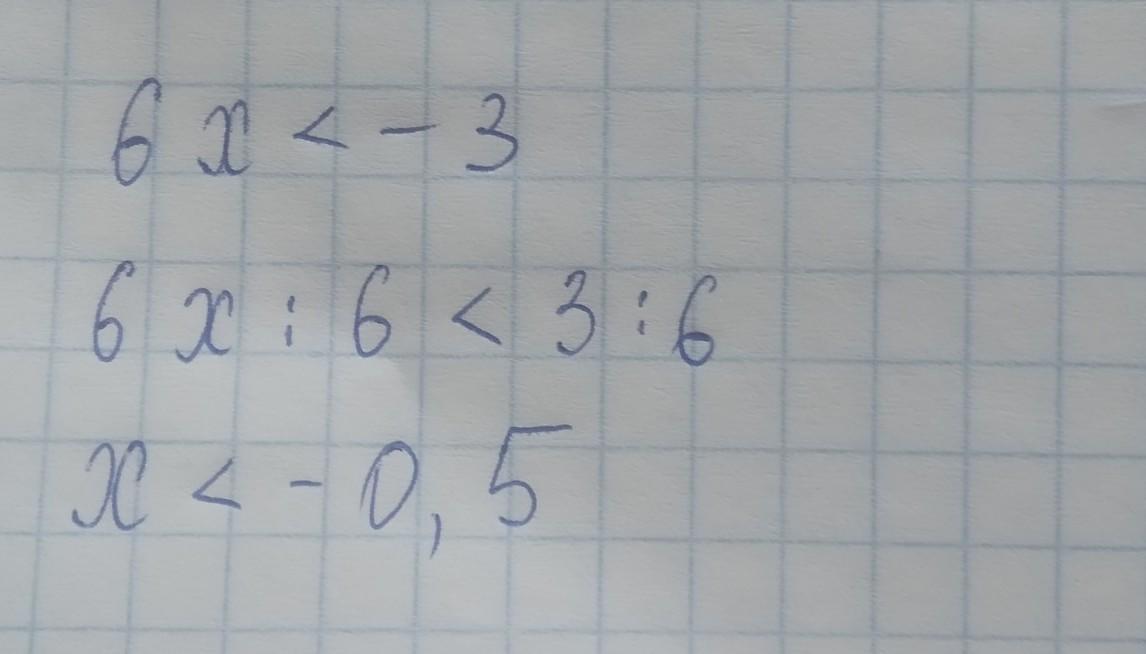 6x < -3
6x : 6 < 3 : 6
x < -0,5